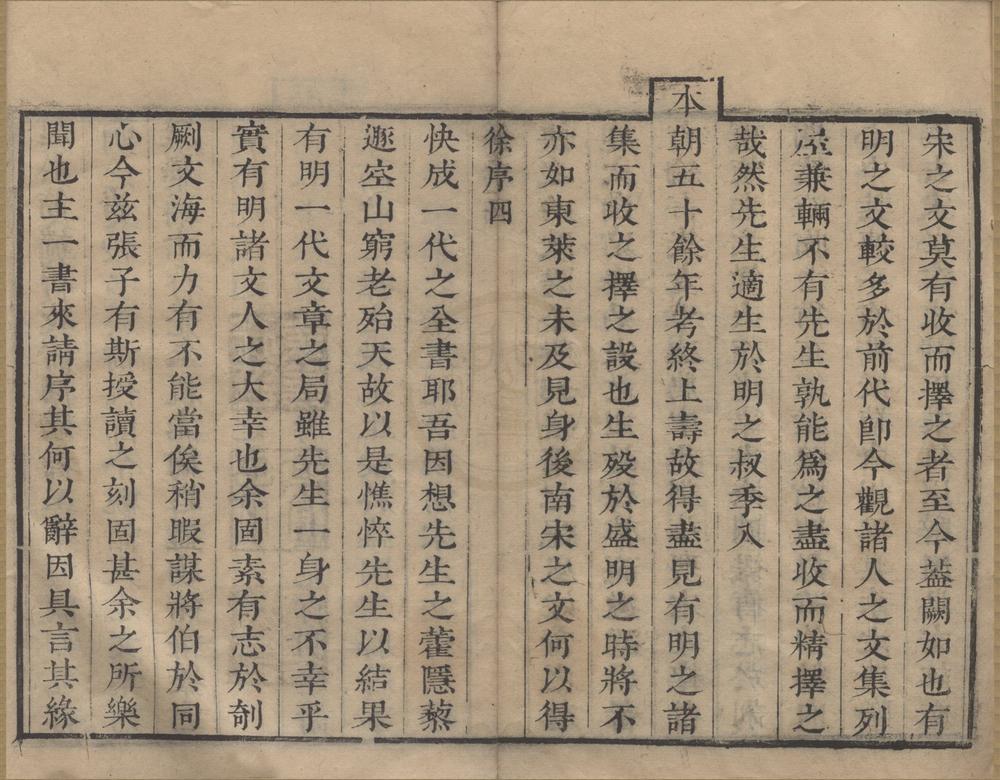 宋之文莫有收而擇之者至今蓋闕如也有
明之文較多於前代卽今觀諸人之文集列
屋兼輛不有先生孰能爲之盡收而精擇之
哉然先生適生於明之叔季入
本朝五十餘年考終上壽故得盡見有明之諸
集而收之擇之設也生歿於盛明之時將不
亦如東萊之未及見身後南宋之文何以得
徐序四
快成一代之全書耶吾因想先生之藿隱藜
遯空山窮老殆天故以是憔悴先生以結果
有明一代文章之局雖先生一身之不幸乎
實有明諸文人之大幸也余固素有志於刳
劂文海而力有不能當俟稍暇謀將伯於同
心今兹張子有斯授讀之刻固甚余之所樂
聞也主一書來請序其何以辭因具言其緣